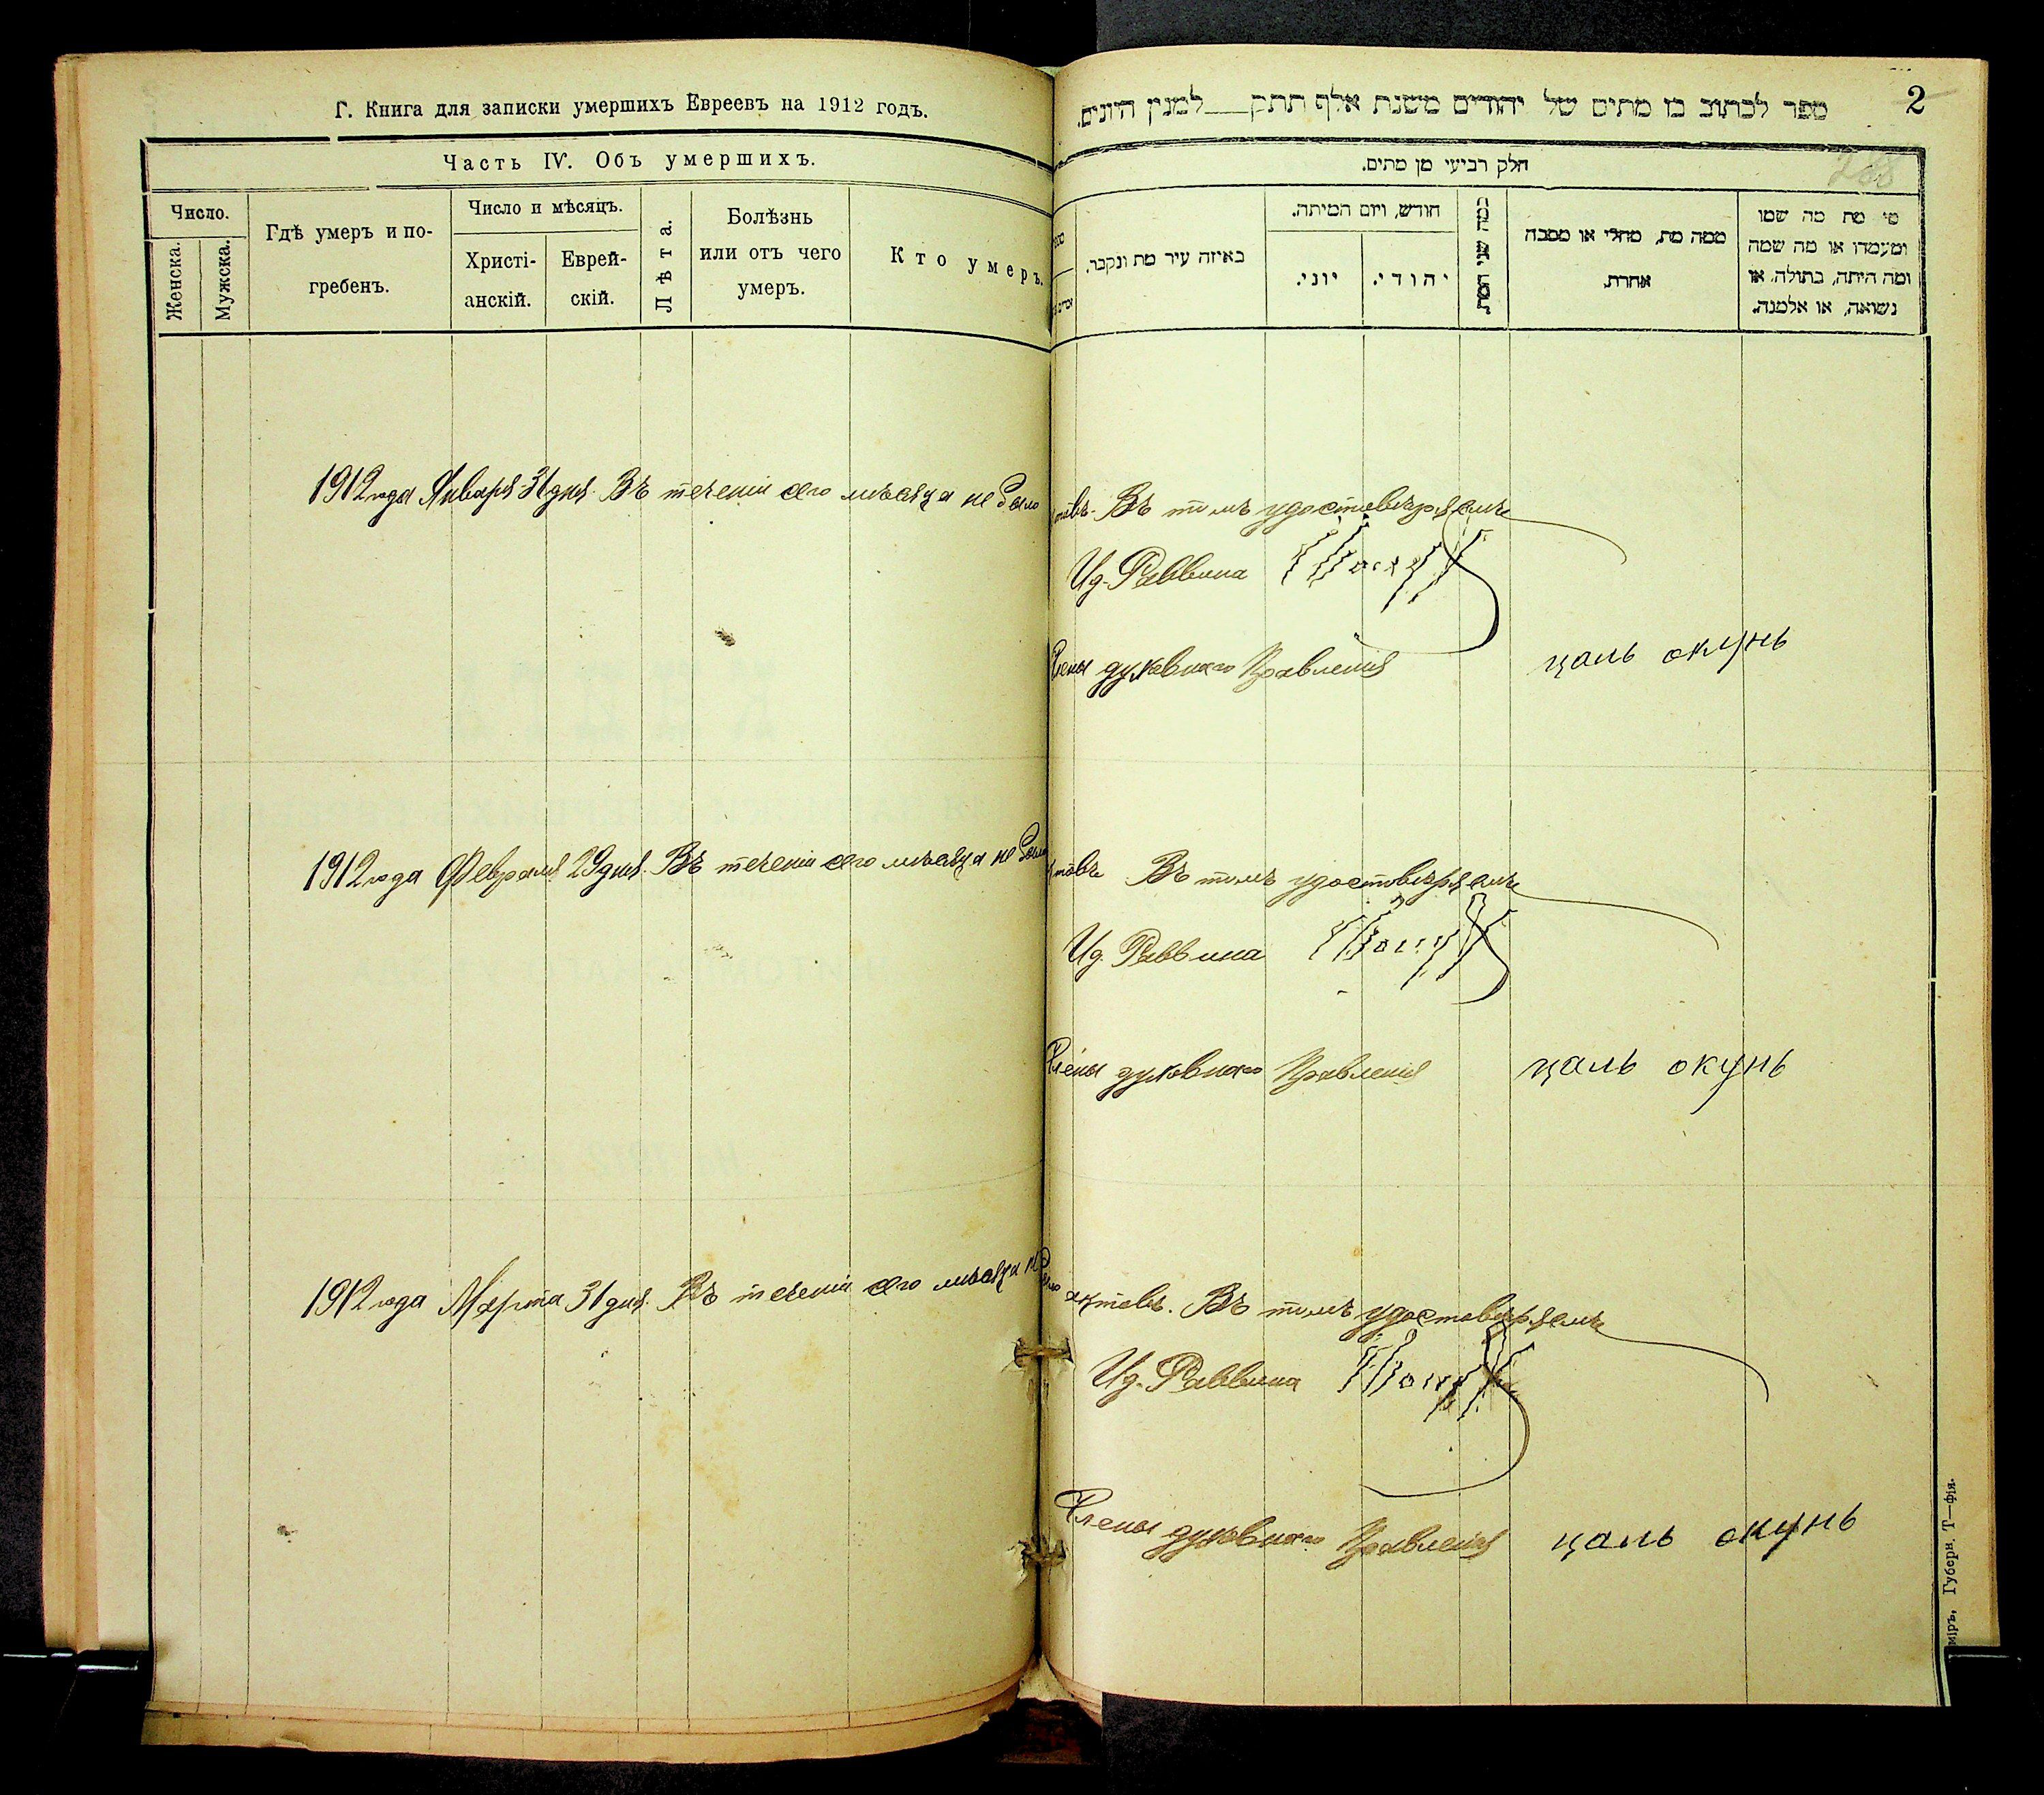 Г. Книга для записки умершихъ Евреевъ на 1912 годъ.
Часть IV. Объ умершихъ.
Число.
Женска.
Мужска.
Гдѣ умеръ и по-
гребенъ.
Число и мѣсяцъ.
Христі-
анскій.
Еврей-
скій.
Лѣта.
Болѣзнь
или отъ чего
умеръ.
Кто умеръ.
2
ספר לכתוב בו מתים של יהודים משנת אלף תתק למנין היונים.
288
חלק רביעי מן מתים.
באיזה עיר מת ונקבר.
חודש, ויום המיתה.
יוני.
יהודי.
כמה שני המת.
ממה מת, מחלי או מסבה
אחרת.
מי מת מה שמו
ומעמדו או מה שמה
ומה היתה, בתולה, או
נשואה, או אלמנה.
1912 года Января 31 дня. Въ теченіи сего мѣсяца не было актовъ. Въ томъ удостовѣряемъ
Ид. Раввина
Члены духовнаго Правленія цаль окунь
1912 года Февраля 29 дня. Въ теченіи сего мѣсяца не было актовъ Въ томъ удостовѣряемъ
Ид. Раввина
Члены духовнаго Правленія цаль окунь
1912 года Марта 31 дня. Въ теченіи сего мѣсяца не было актовъ. Въ томъ удостовѣряемъ
Ид. Раввина
Члены духовнаго Правленія цаль окунь
міръ, Губерн. Т—фія.